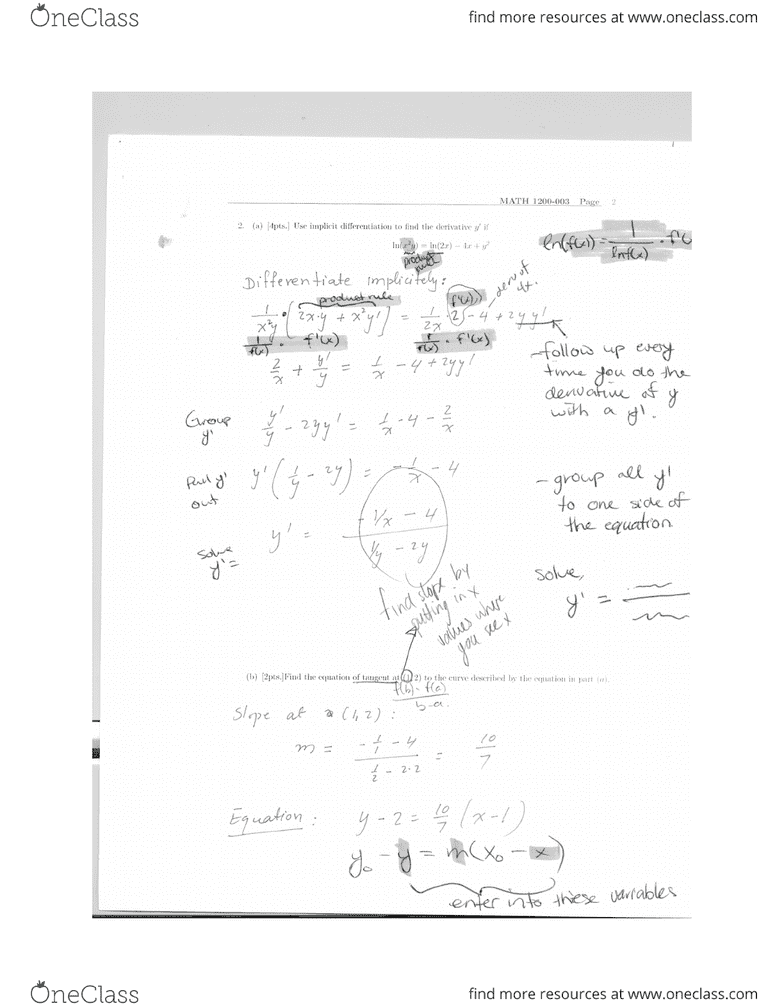 OneClass
find more resources at www.oneclass.com
MATH 1200-003 Page 2
2. (a) [4pts.] Use implicit differentiation to find the derivative y' if
ln(x²y) = ln(2x) − 4x + y²
product rule
ln(f(x)) = 1/lnf(x) · f'(
Differentiate implicitely:
product rule
f'(x)
deriv of
1/x²y · [2x·y + x²y'] = 1/2x · 2 − 4 + 2yy'
1/f(x) · f'(x)
1/f(x) · f'(x)
2/x + y'/y = 1/x − 4 + 2yy'
- follow up every
time you do the
derivative of y
with a y'.
Group
y'
y'/y − 2yy' = 1/x - 4 − 2/x
Pull y'
out
y'(1/y − 2y) = −1/x − 4
- group all y'
to one side of
the equation
Solve
y'=
y' = −1/x − 4 / 1/y − 2y
Solve,
y' =
find slope by
putting in x
values where
you see x
(b) [2pts.]Find the equation of tangent at (1,2) to the curve described by the equation in part (a).
f(b) - f(a) / b-a.
Slope at (1,2) :
m = −1/1 − 4 / 1/2 − 2·2 = 10/7
Equation : y − 2 = 10/7 (x−1)
y₀ − y = m(x₀ − x)
enter into these variables
OneClass
find more resources at www.oneclass.com